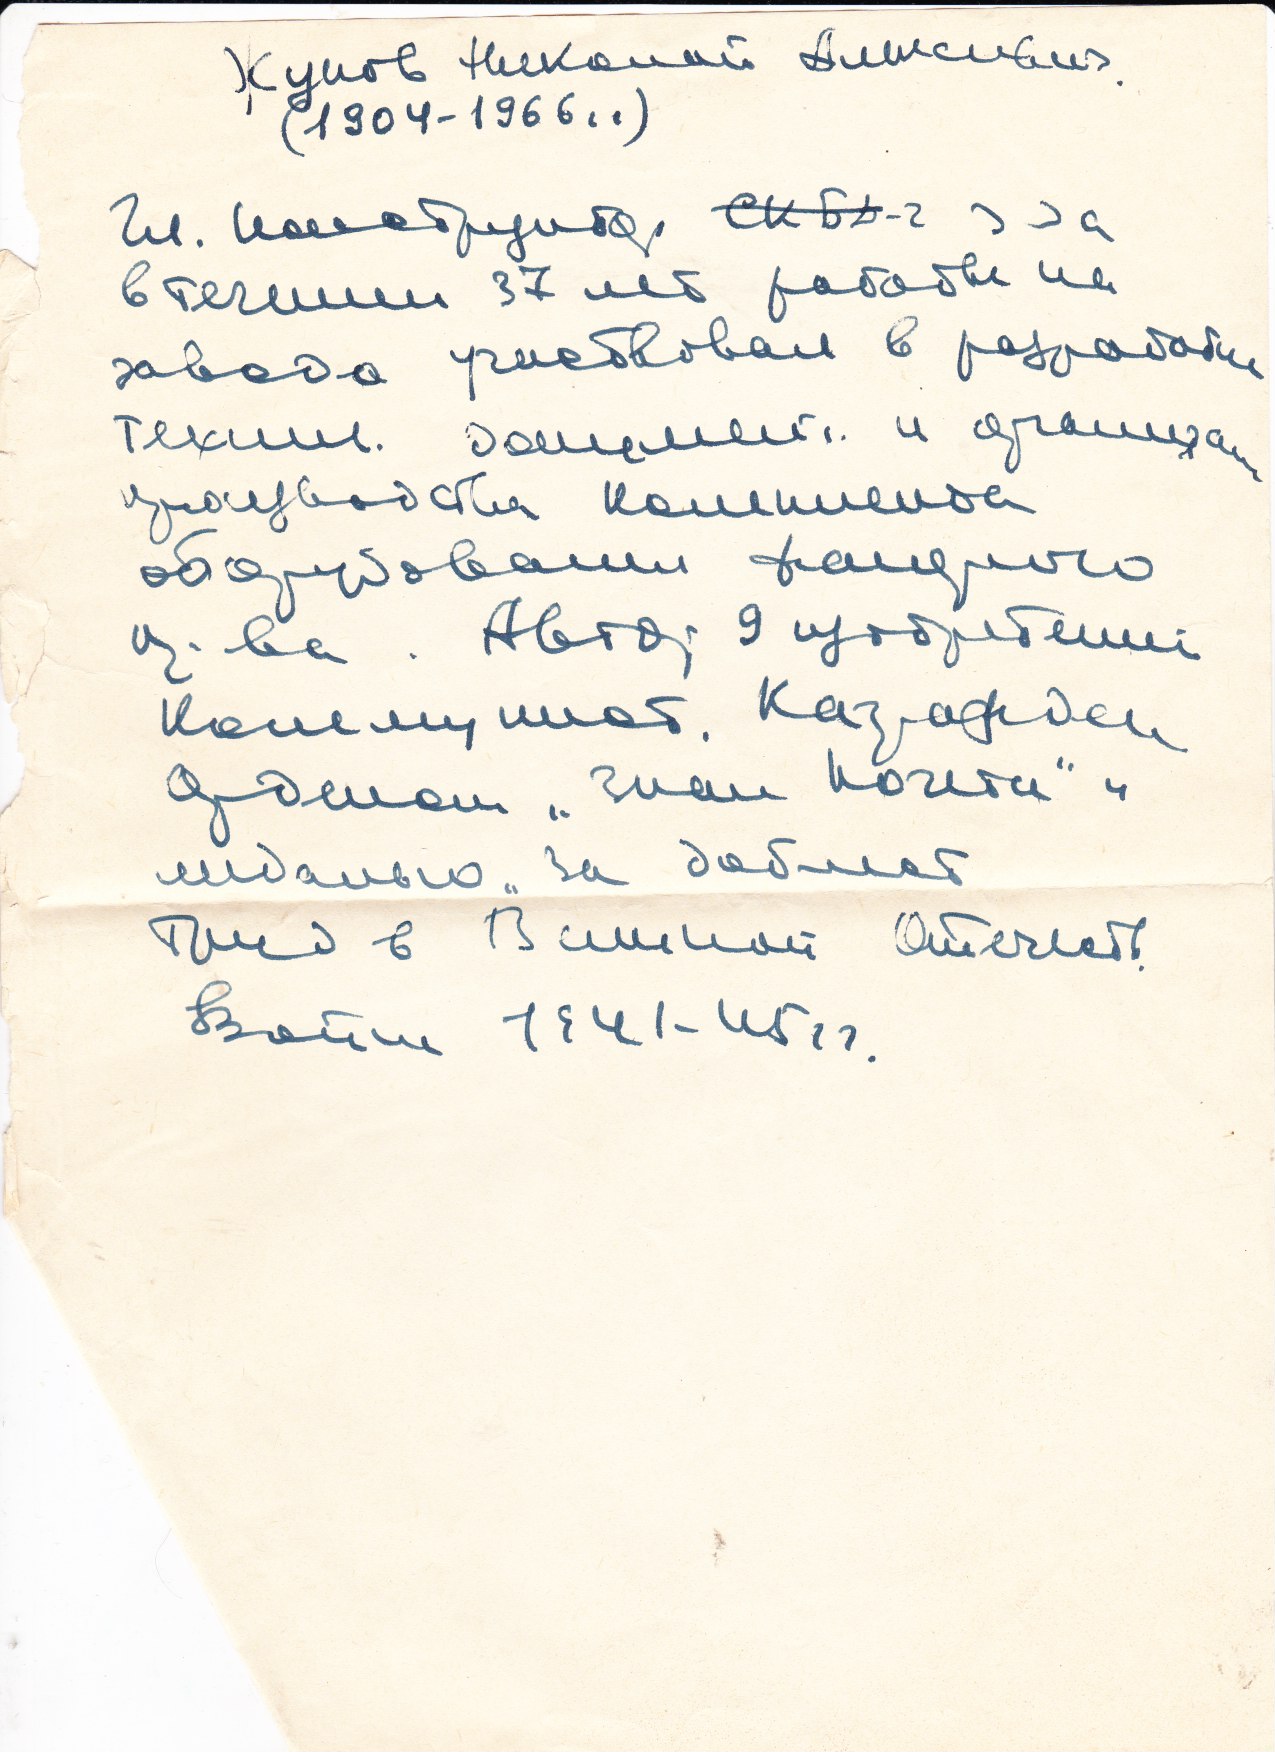 Жуков Николай Алексеевич.
(1904-1966г.г)
Гл. Конструктор СКБ
в течении 37 лет работы на
завода участвовал в разработке
технич. документ. и организац
производства
оборудования
пр-ва. Автор 9 изобретений
Коммунист. Награжден
Орденом „Знак Почета" и
медалью „За доблест
труд в Великой Отечеств.
Войне 1941-45гг.